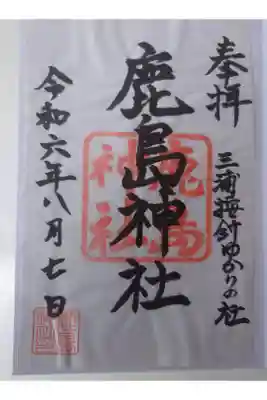 奉拝
三浦按針ゆかりの社
鹿島神社
令和六年八月七日